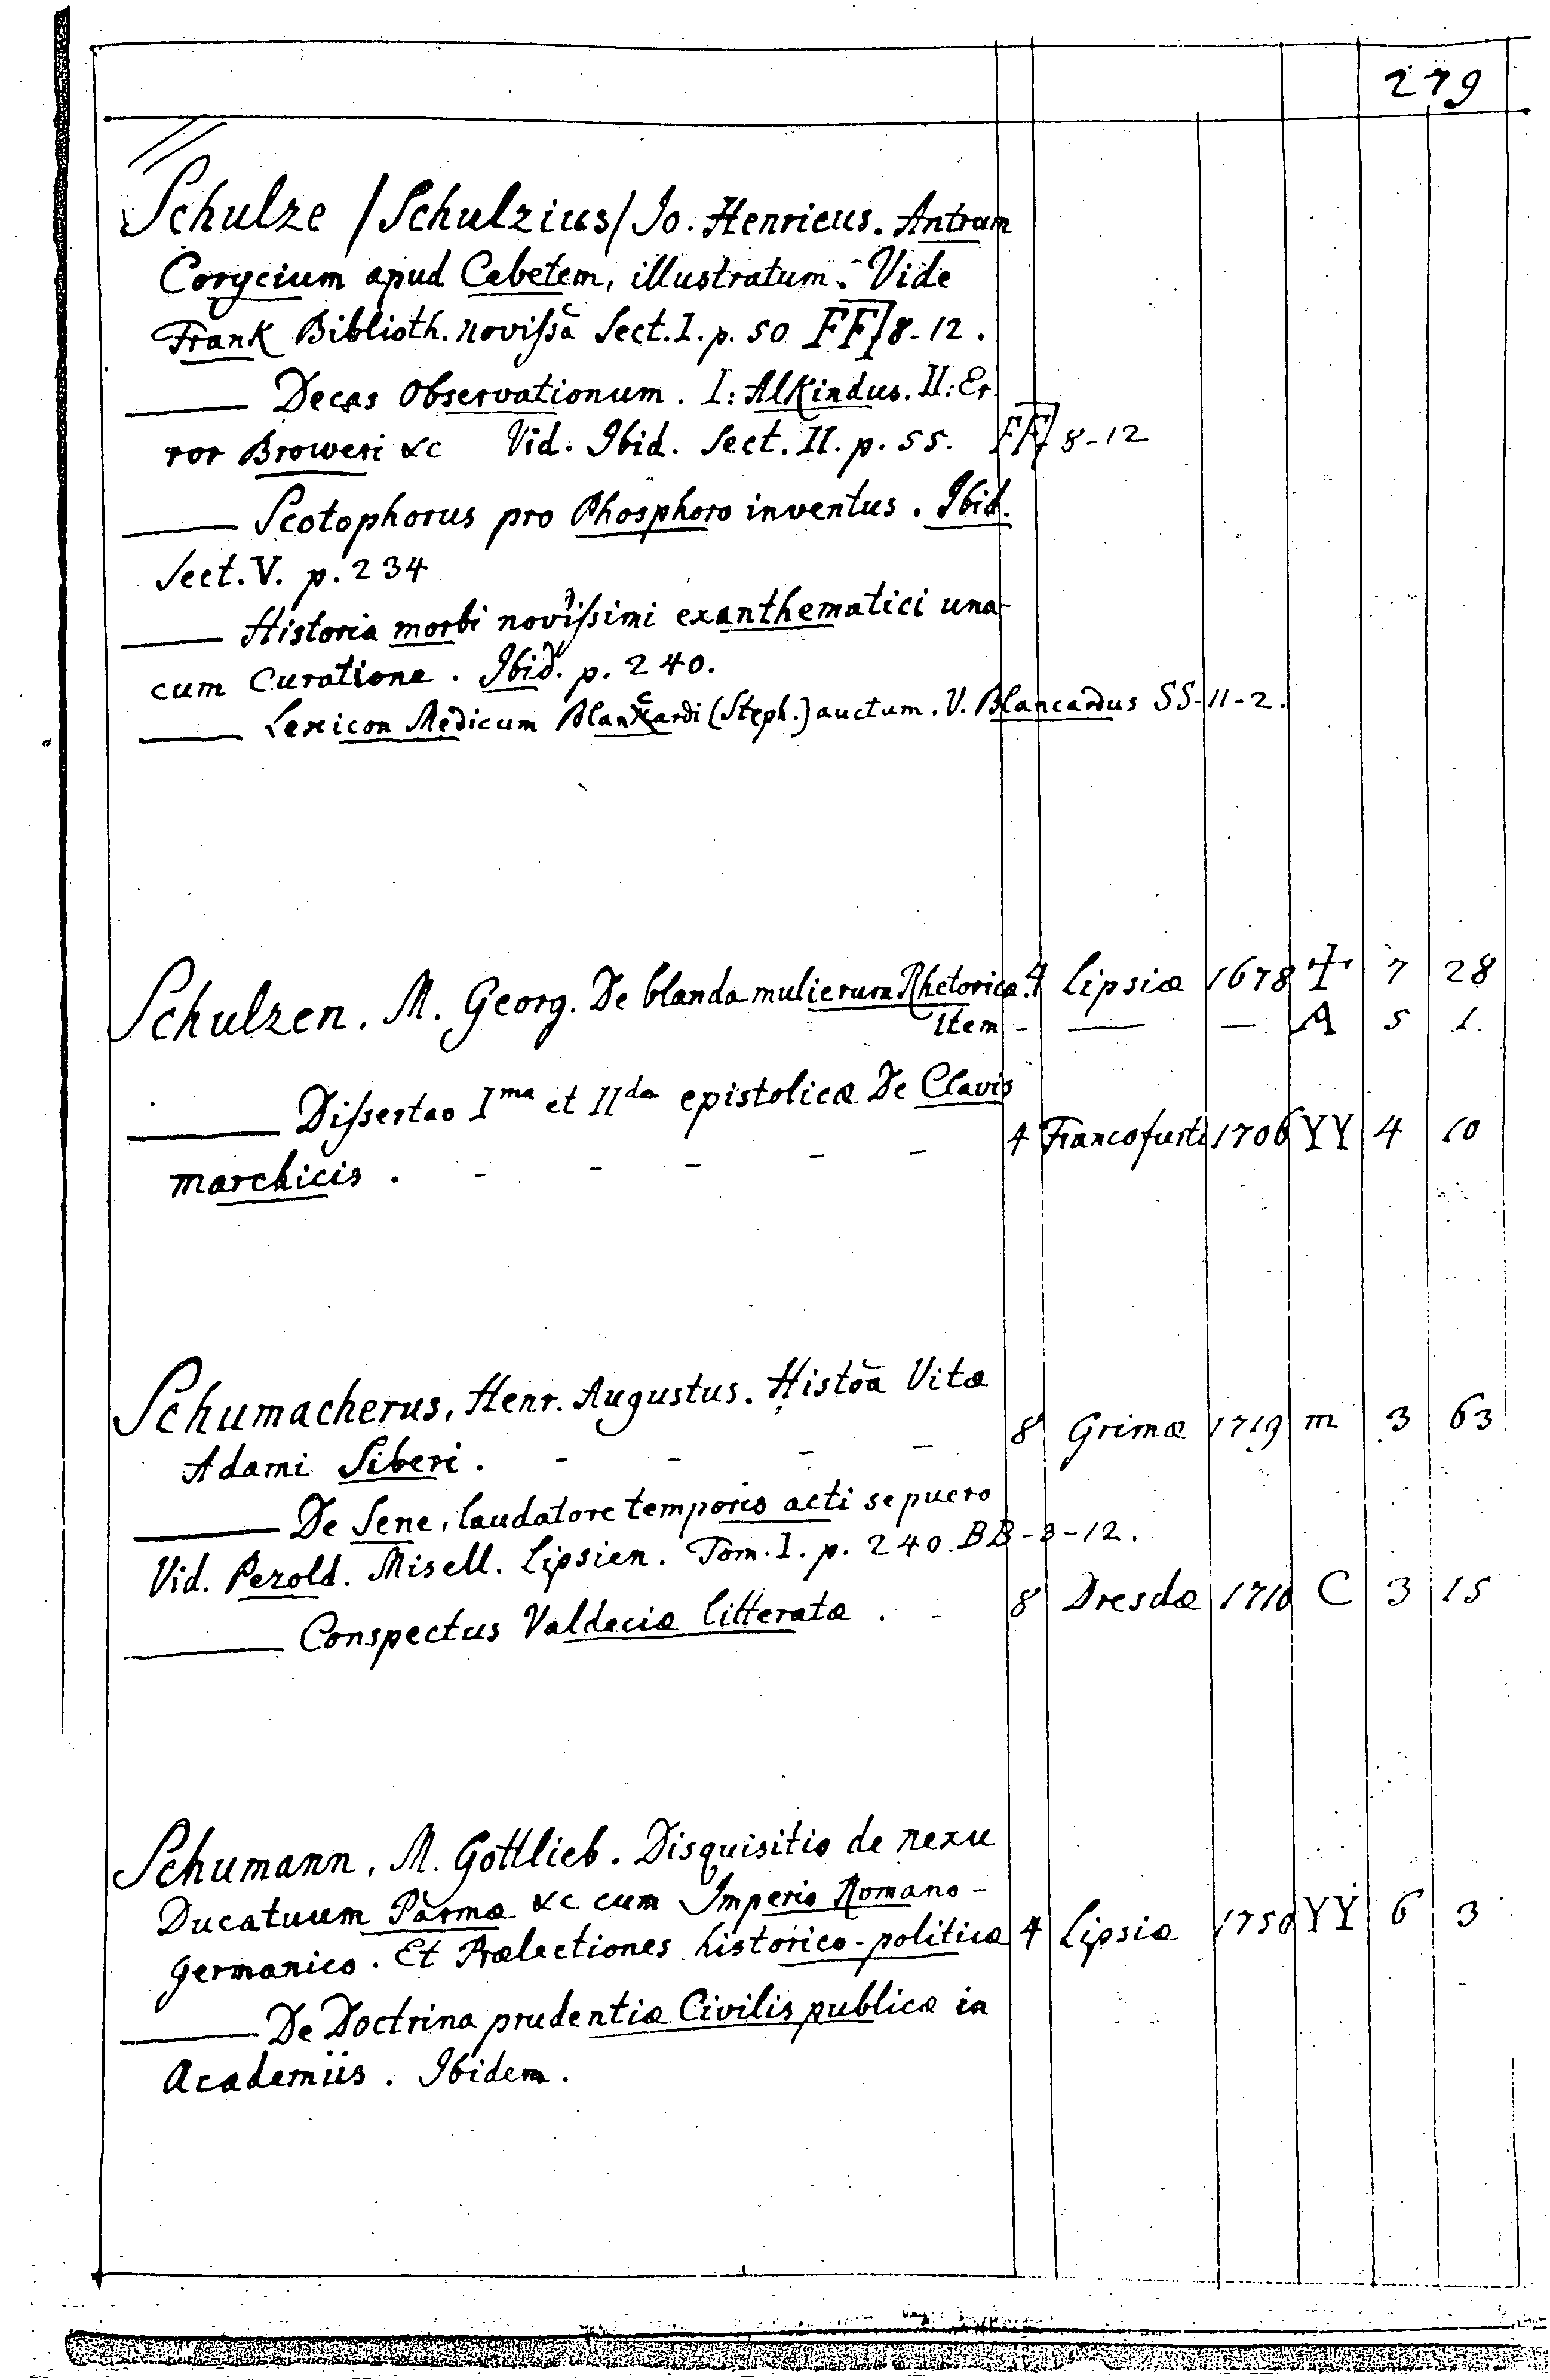 279
Schulze /Schulzius/ Jo. Henricus. Antrum
Corycium apud Cebetem, illustratum. Vide
Frank Biblioth. novissā Sect. I. p. 50 FF 8-12.
—— Decas Observationum. I: Alkindus. II: Er
ror Broweri &c Vid. Ibid. Sect. II. p. 55. FF 8-12
—— Scotophorus pro Phosphoro inventus. Ibid.
Sect. V. p. 234
—— Historia morbi novissimi exanthematici una
cum Curatione. Ibid. p. 240.
—— Lexicon Medicum Blancardi (Steph.) auctum. V. Blancardus SS-11-2.
Schulzen. M. Georg. De blanda mulierum Rhetorica. 4 Lipsiæ 1678 Ɨ 7 28
Item - — — A 5 1.
—— Dissertao Ima et IIda epistolica De Clavis
marchicis. - - - - - 4 Francofurti 1706 YY 4 10
Schumacherus, Henr. Augustus. Histōa Vitæ
Adami Siberi. - - - - 8 Grimæ 1719 m 3 63
—— De Sene, laudatore temporis acti se puero
Vid. Pezold. Misell. Lipsien. Tom. I. p. 240. BB-3-12.
—— Conspectus Valdeciæ litteratæ. - 8 Dresdæ 1710 C 3 15
Schumann, M. Gottlieb. Disquisitio de nexu
Ducatuum Parmæ &c cum Imperio Romano-
germanico. Et Prælectiones historico-politicæ 4 Lipsiæ 1750 YY 6 3
—— De Doctrina prudentiæ Civilis publicæ in
Academiis. Ibidem.